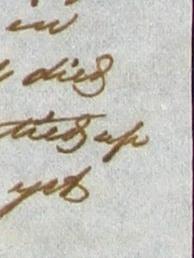 in
died
tied up
yet